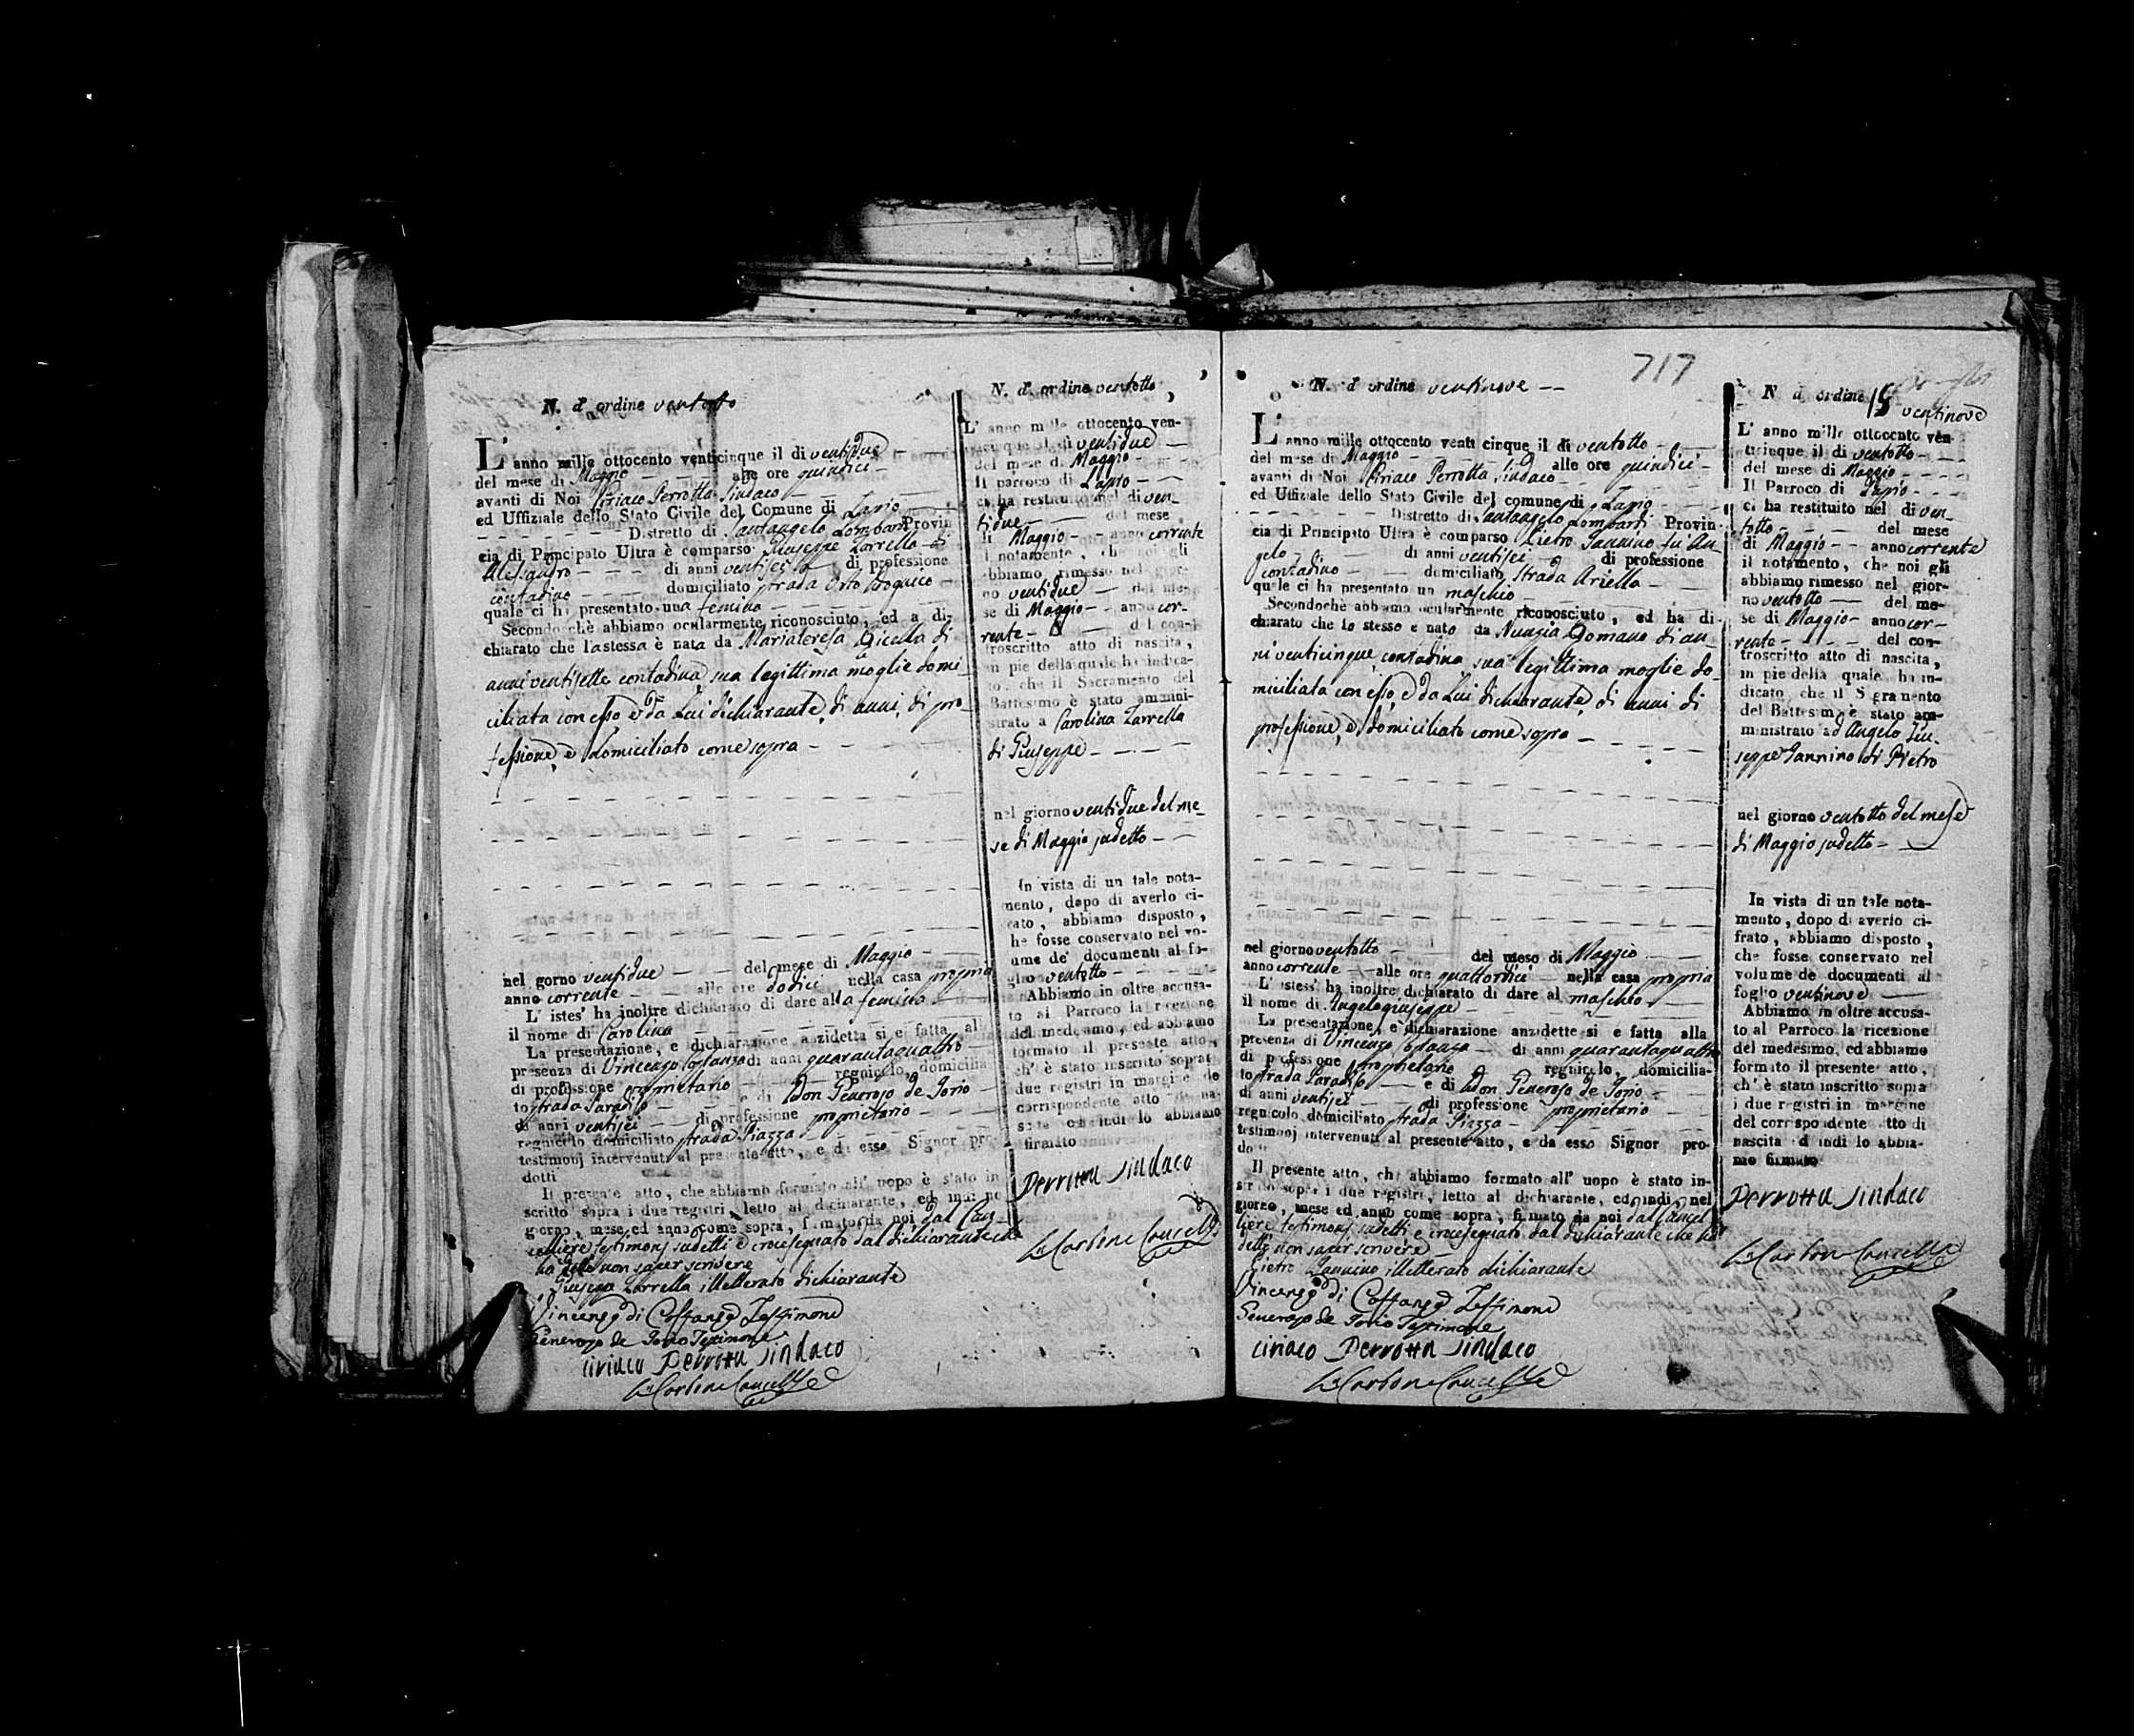 N. d'ordine ventotto
L'anno mille ottocento venticinque il di ventidue
del mese di Maggio alle ore quindici
avanti di Noi Ciriaco Perrotta Sindaco
ed Uffiziale dello Stato Civile del Comune di Lapio
Distretto di Santangelo Lombardi Provin
cia di Principato Ultra è comparso Giuseppe Zarrella di
Alesandro di anni ventisei di professione
contadino domiciliato strada Orto
quale ci ha presentato una femina
Secondo chè abbiamo ocularmente riconosciuto, ed a di-
chiarato che lastessa è nata da Mariateresa Ciccola di
anni ventisette contadina sua legittima moglie domi
ciliata con esso e da Lui dichiarante, di anni, di pro-
fessione, e domiciliato come sopra
nel gorno ventidue del mese di Maggio
anno corrente alle ore dodici nella casa propria
L'istes' ha inoltre dichiarato di dare alla femina
il nome di Carolina
La presentazione, e dichiarazione anzidetta si e fatta al
presenza di Vincenzo Costanzo di anni quarantaquattro
di professione proprietario regnicolo, domicilia
to strada Paradiso e di Don Generoso de Iorio
di anni ventisei di professione proprietario
regnicolo domiciliato strada Piazza
testimonj intervenuti al presente atto, e da esso Signor pro
dotti
Il presente atto, che abbiamo formato all' uopo è stato in
scritto sopra i due registri, letto al dichiarante, ed indi ne
giorno, mese ed anno come sopra, firmato da noi dal Can-
celliere testimonj sudetti e crocesegnato dal dichiarante che
ha detto non saper scrivere
Giuseppe Zarrella illetterato dichiarante
Vincenzo di Costanzo Testimone
Generoso de Iorio Testimone
Ciriaco Perrotta Sindaco
Carbone Cancell.e
N. d'ordine ventotto
L'anno mille ottocento ven-
ticinque il dì ventidue
del mese di Maggio
Il parroco di Lapio
ci ha restituito nel di ven-
tidue del mese
di Maggio anno corrente
il notamento, che noi gli
abbiamo rimesso nel gior-
no ventidue del me-
se di Maggio anno cor-
rente del con-
troscritto atto di nascita,
in pie della quale ha indica-
to, che il Sacramento del
Battesimo è stato ammini-
strato a Carolina Zarrella
di Giuseppe
nel giorno ventidue del me-
se di Maggio sudetto
In vista di un tale nota-
mento, dopo di averlo ci-
frato, abbiamo disposto,
che fosse conservato nel vo-
lume de' documenti al fo-
glio ventotto
Abbiamo in oltre accusa-
to al Parroco la ricezione
del medesimo, ed abbiamo
formato il presente atto,
ch' è stato inscritto sopra
due registri in margine de
corrispondente atto di na-
scita ed indi lo abbiamo
firmato
Perrotta Sindaco
Carbone Cancell.e
717
N. d'ordine ventinove
L'anno mille ottocento venti cinque il di ventotto
del mese di Maggio alle ore quindici
avanti di Noi Ciriaco Perrotta Sindaco
ed Uffiziale dello Stato Civile del comune di Lapio
Distretto di Santangelo Lombardi Provin-
cia di Principato Ultra è comparso Pietro Iannino fu An-
gelo di anni ventisei di professione
contadino domiciliato Strada Ariella
quale ci ha presentato un maschio
Secondochè abbiamo ocularmente riconosciuto, ed ha di-
chiarato che lo stesso e nato da Nunzia Romano di an-
ni venticinque contadina sua legittima moglie do-
miciliata con esso, e da Lui dichiarante, di anni di
professione, e domiciliato come sopra
nel giorno ventotto del meso di Maggio
anno corrente alle ore quattordici nella casa propria
L' istess' ha inoltre dichiarato di dare al maschio
il nome di Angelogiuseppe
La presentazione, e dichiarazione anzidette si e fatta alla
presenza di Vincenzo Costanzo di anni quarantaquattro
di professione proprietario regnicolo, domicilia-
to strada Paradiso e di Don Generoso de Iorio
di anni ventisei di professione proprietario
regnicolo domiciliato strada Piazza
testimonj intervenuti al presente atto, e da esso Signor pro-
dotti
Il presente atto, che abbiamo formato all' uopo è stato in-
scritto sopra i due registri, letto al dichiarante, ed indi nel
giorno, mese ed anno come sopra, firmato da noi dal Cancel-
liere testimonj sudetti e crocesegnato dal dichiarante che ha
detto non saper scrivere
Pietro Iannino illetterato dichiarante
Vincenzo di Costanzo Testimone
Generoso de Iorio Testimone
Ciriaco Perrotta Sindaco
Carbone Cancell.e
N d'ordine ventinove
L' anno mille ottocento ven-
ticinque il di ventotto
del mese di Maggio
Il Parroco di Lapio
ci ha restituito nel di ven-
totto del mese
di Maggio anno corrente
il notamento, che noi gli
abbiamo rimesso nel gior-
no ventotto del me-
se di Maggio anno cor-
rente del con-
troscritto atto di nascita,
in pie della quale ha in-
dicato che il Sagramento
del Battesimo è stato am-
ministrato ad Angelo Giu-
seppe Iannino di Pietro
nel giorno ventotto del mese
di Maggio sudetto
In vista di un tale nota-
mento, dopo di averlo ci-
frato, abbiamo disposto,
che fosse conservato nel
volume de documenti al
foglio ventinove
Abbiamo in oltre accusa-
to al Parroco la ricezione
del medesimo, ed abbiamo
formato il presente atto,
ch' è stato inscritto sopra
i due registri in margine
del corrispondente atto di
nascita ed indi lo abbia-
mo firmato
Perrotta Sindaco
Carbone Cancell.e